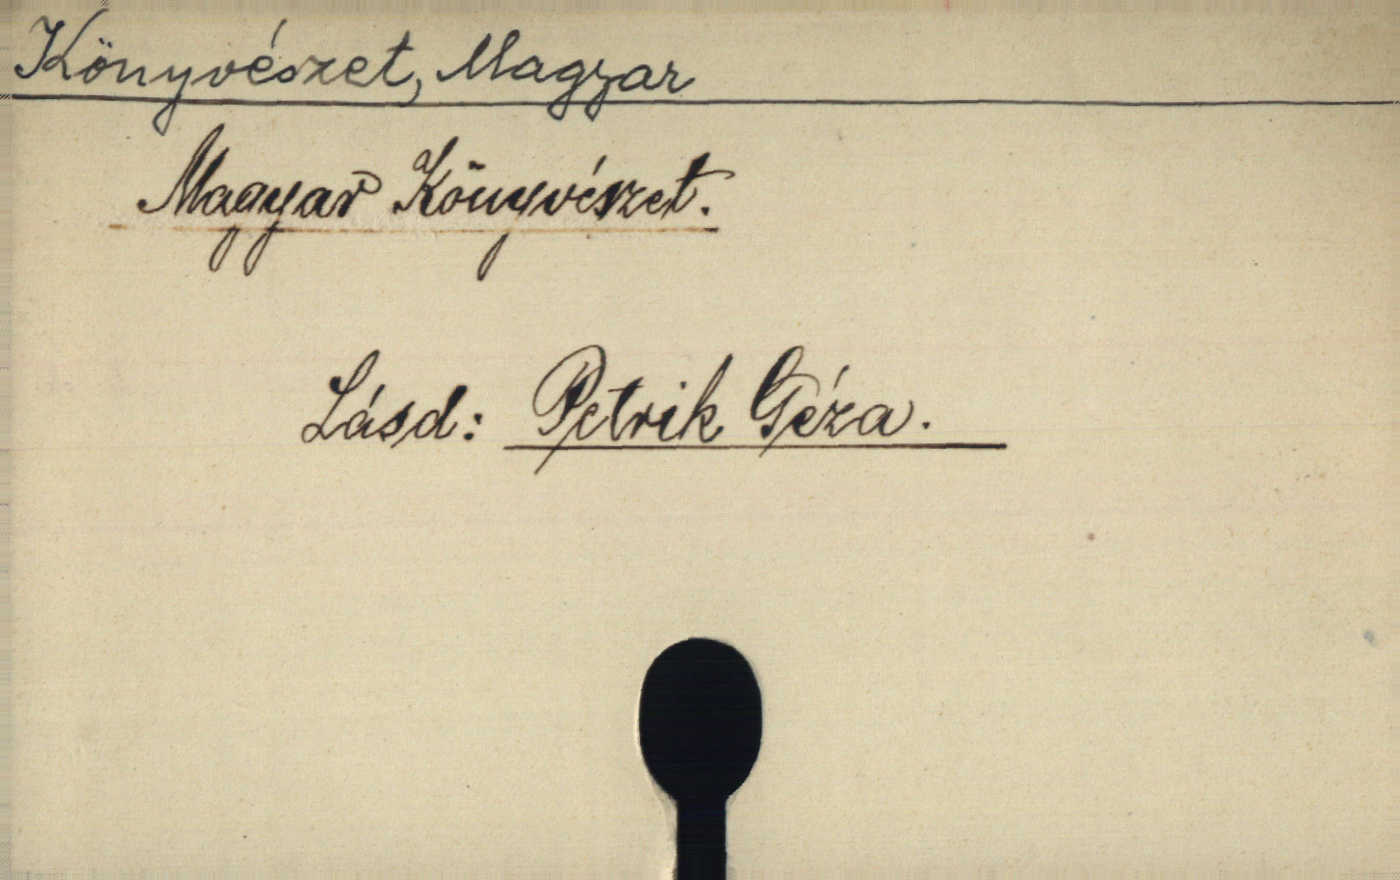 Könyvészet, Magyar
Magyar Könyvészet.
Lásd: Petrik Géza.